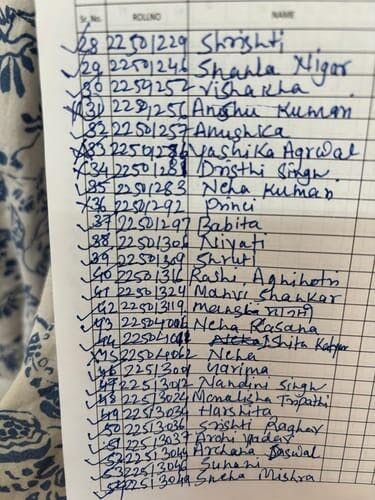 Sr. No. ROLLNO NAME
28 22501229 Shrishti
29 22501246 Shahla Nigar
30 2259252 Vishakha
31 22501256 Anshu Kumari
32 22501257 Anushka
33 Yashika Agrwal
34 2250128 Dristhi Singh
35 22501283 Neha Kumari
36 22501292 Princi
37 22501297 Babita
38 22501306 Niyati
39 22501309 Shruti
40 22501316 Rashi Agnihotri
41 22501324 Mahvi Shankar
42 22501319
43 22504006 Neha Rasana
44 Ishita
45 22504062 Neha
46 22513001 Garima
47 22513012 Nandini Singh
48 22513024 Monalisha Tripathi
49 22513034 Harshita
50 22513036 Srishti Raghav
51 22513037 Arohi Yadav
52 Archana Jaswal
53 22513046 Suhani
54 22513049 Sneha Mishra